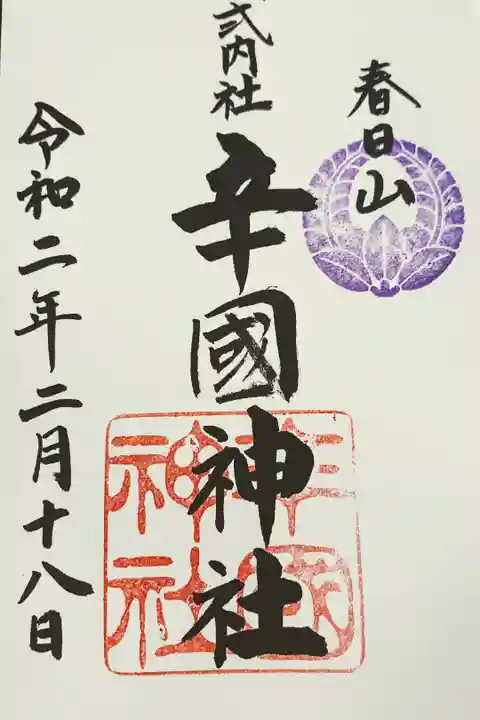 春日山
式内社
辛國神社
令和二年二月十八日
辛國
神社